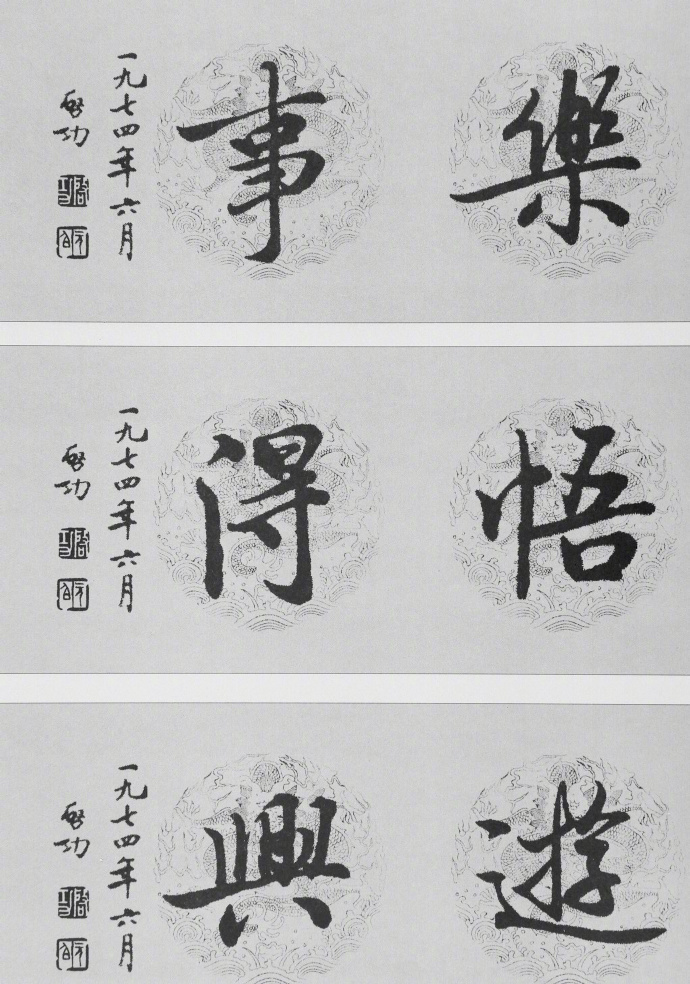 樂事
一九七四年六月
啓功
悟得
一九七四年六月
啓功
遊興
一九七四年六月
啓功